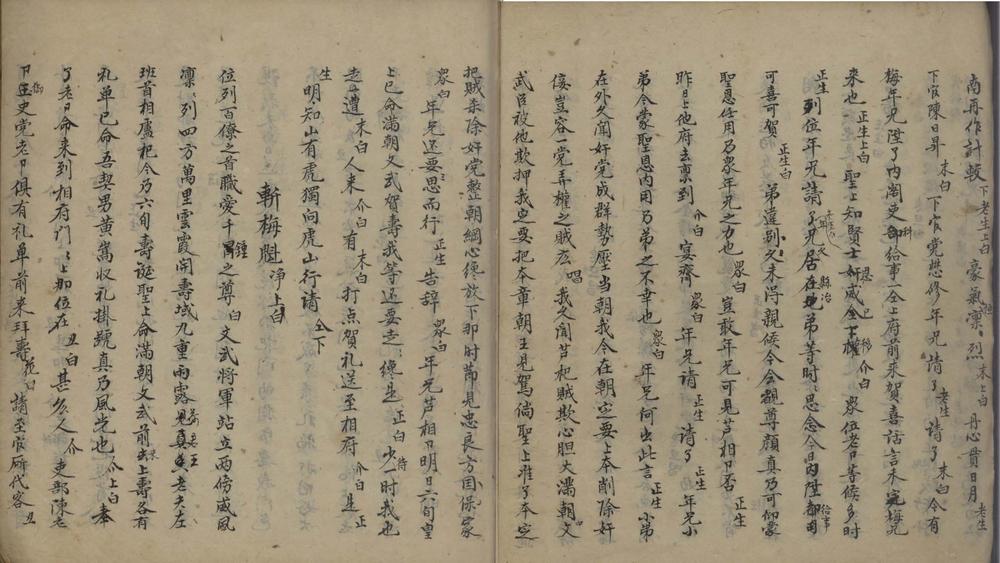 南再作計較 下老生上白 豪氣凛烈 末上白 丹心貫日月 老生
下官陳日昇 末白 下官党懋修年兄請了 老生 請了 末白 今有
梅年兄陞了內閣吏科給事一仝上府前來賀喜話言未完梅兄
來也 正生上白 聖上知賢士奸威 介白 眾位老爺等候多時
正生 列位年兄請了 弟等時思念今日內陞都
可喜可賀 正生白 弟違別久未得親候今会觀尊顏真乃可仰蒙
聖恩任用乃眾年兄之力也 眾白 豈敢年兄可見芦相爺否 正生
昨日上他府去禀到 介白 宴齊 眾白 年兄請 正生 請了 正生 年兄小
弟今蒙聖恩內用乃弟之不幸也 眾白 年兄何出此言 正生 小弟
在外久聞奸党成群勢壓當朝我今在朝定要上本削除奸
佞豈容一党弄權之賊広 唱 我久聞芦杞賊欺心胆大滿朝文
武臣被他欺押我定要把本章朝王見駕倘聖上准了本定
把賊來除奸党整朝綱心纔放下那时節見忠良方固保家
眾白 年兄还要思而行 正生 告辞 眾白 年兄芦相爺明日六旬皇
上已命滿朝文武賀壽我等还要走走纔是 正白 少待一时我也
走一遭 末白 人來 介白 有 末白 打点賀礼送至相府 介白 是 正
生 明知山有虎獨向虎山行請 仝下
斬梅魁 淨上白
位列百僚之首職愛千鍾之尊 白 文武將軍站立兩傍威風
凛列四方萬里雲霞開壽域九重雨露見真 老夫左
班首相盧杞今乃六旬壽诞聖上命滿朝文武前來上壽各有
礼单已命吾契男黃嵩収礼掛號真乃風光也 介上白 奉
了老爺命來到相府門門上那位在 丑白 甚么人 介 吏部陳老
爺御史党老爺俱有礼单前來拜壽 丑白 請至官所代客 丑